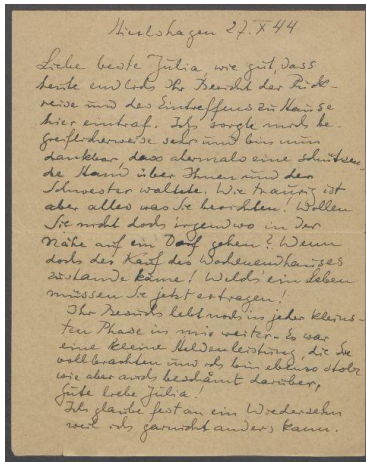 Nienhagen 27. X 44
Liebe beste Julia, wie gut, dass
heute endlich Ihr Bericht der Rück-
reise und des Eintreffens zu Hause
hier eintraf. Ich sorgte mich be-
greiflicherweise sehr und bin nun
dankbar, dass abermals eine schützen-
de Hand über Ihnen und der
Schwester waltete. Wie traurig ist
aber alles was Sie berichten! Wollen
Sie nicht doch irgendwo in der
Nähe auf ein Dorf gehen? Wenn
doch der Kauf des Wochenendhauses
zustande käme! Welch' ein Leben
müssen Sie jetzt ertragen!
Ihr Besuch lebt noch in jeder kleins-
ten Phase in mir weiter. Es war
eine kleine Heldenleistung, die Sie
vollbrachten und ich bin ebenso stolz
wie aber auch beschämt darüber,
Gute liebe Julia!
Ich glaube fest an ein Wiedersehn
weil ich garnicht anders kann.